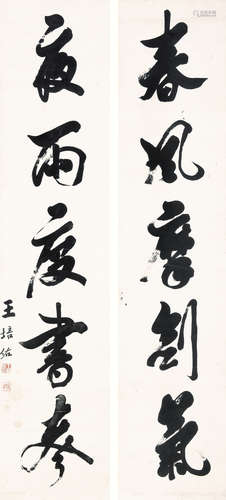 春風摩劍氣
夜雨度書聲
王培佑